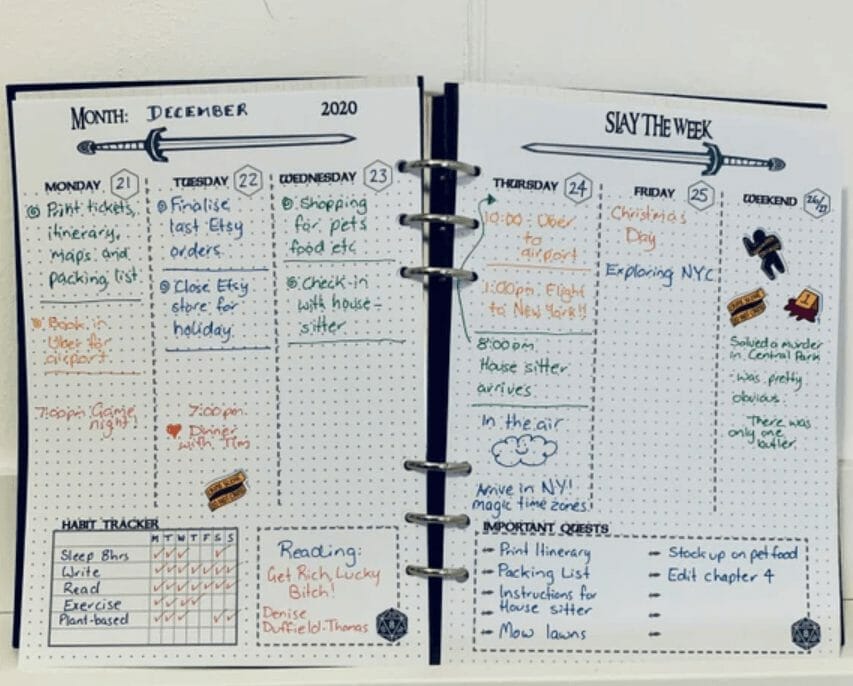 MONTH: DECEMBER 2020
MONDAY 21
Print tickets,
itinerary,
maps and
packing list.
Book in
Uber for
airport
7:00pm Game
night!
TUESDAY 22
Finalise
last Etsy
orders.
Close Etsy
store for
holiday.
7:00pm
Dinner
with Tim
CRIME SCENE
DO NOT CROSS
WEDNESDAY 23
Shopping
for pets
food etc
Check-in
with house-
sitter
HABIT TRACKER
M T W T F S S
Sleep 8hrs
Write
Read
Exercise
Plant-based
Reading:
Get Rich, Lucky
Bitch!
Denise
Duffield-Thomas
SLAY THE WEEK
THURSDAY 24
10:00 Uber
to
airport
1:00pm Flight
to New York!!
8:00pm
House sitter
arrives
In the air
Arrive in NY!
magic time zones!
FRIDAY 25
Christmas
Day
Exploring NYC
WEEKEND 26/27
CRIME SCENE
DO NOT CROSS
1
Solved a murder
in Central Park
- was pretty
obvious.
There was
only one
butler.
IMPORTANT QUESTS
Print Itinerary
Packing List
Instructions for
House sitter
Mow lawns
Stock up on pet food
Edit chapter 4